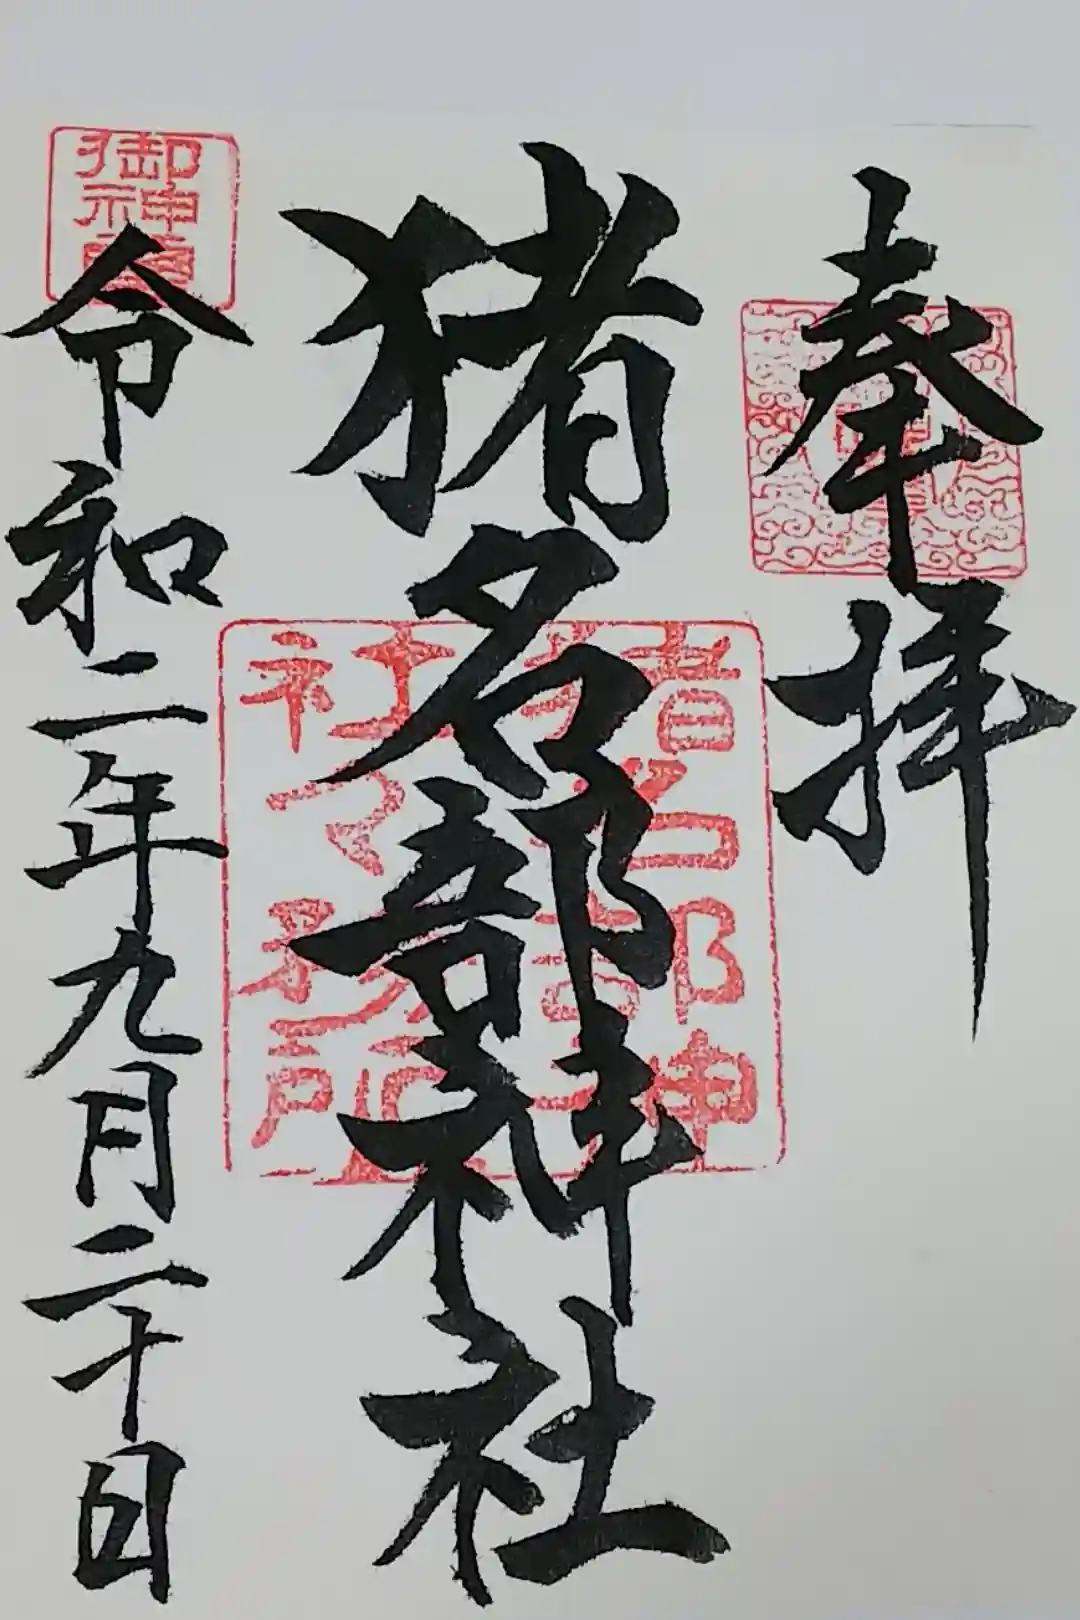 奉拝
猪名部神社
令和二年九月二十日
猪名部神
社々務所
御神